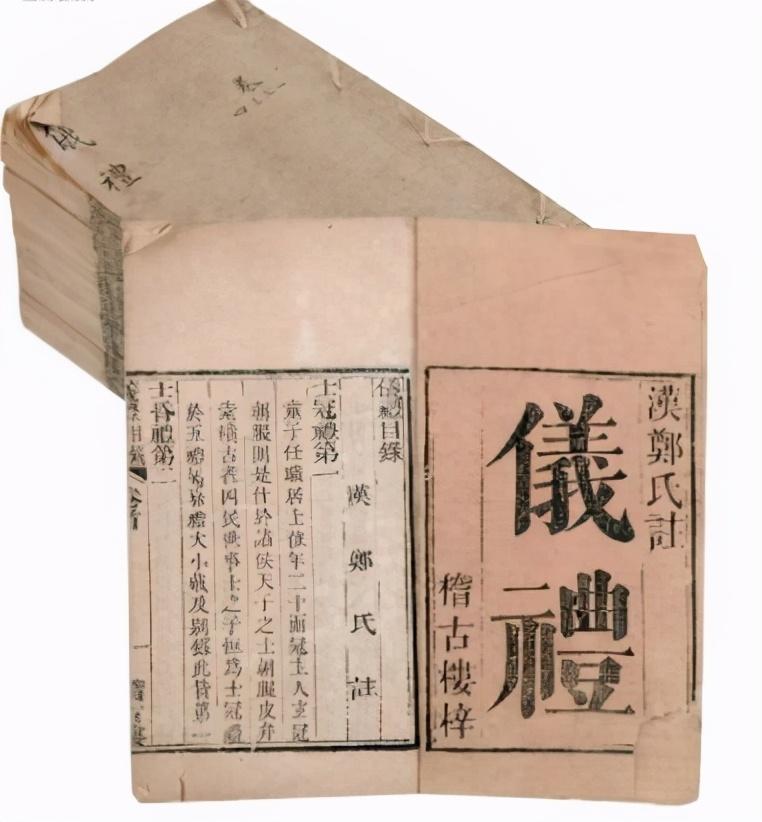 儀禮
卷
漢鄭氏註
儀禮
稽古樓梓
儀禮目錄
漢鄭氏註
士冠禮第一
童子任職居士位年二十而冠主人玄冠
朝服則是仕於諸侯天子之士朝服皮弁
素積古者四民世事士之子恒為士冠禮
於五禮屬嘉禮大小戴及別錄此皆第
士昏禮第二
儀禮目錄
一